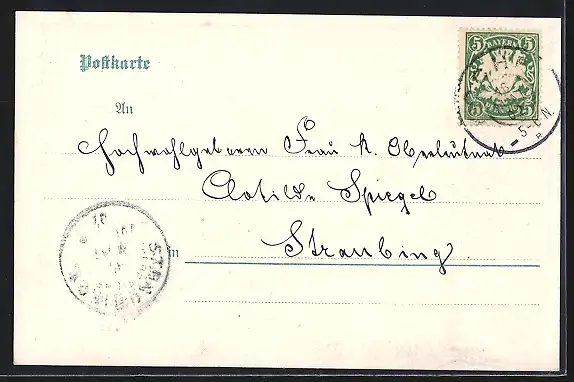 5 BAYERN 5
5 PFENNIG 5
Postkarte
An
Hochwohlgeboren Frau k. Oberleutnant
Clotilde Spiegel
in
Straubing
STRAUBING
5-6 N.